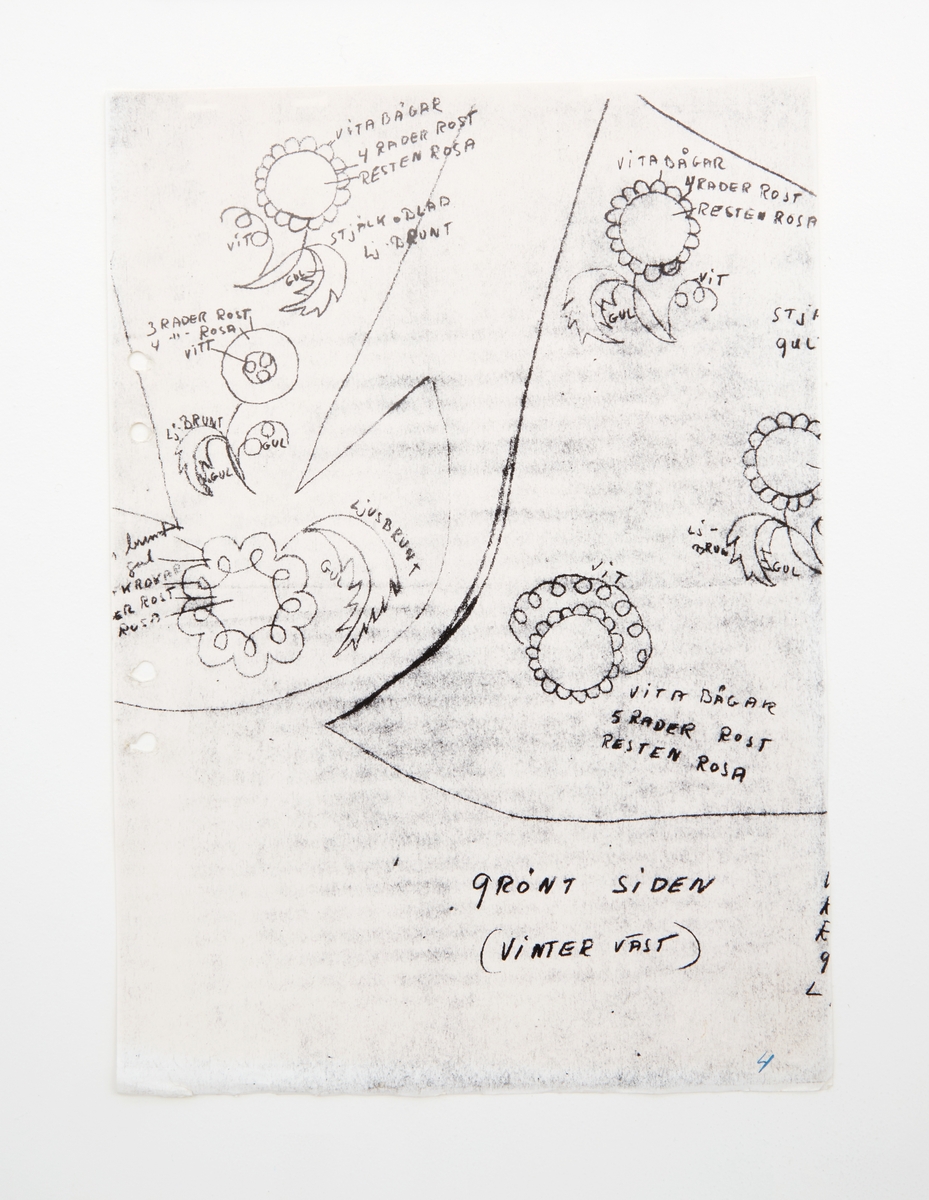 VITA BÅGAR
4 RADER ROST
RESTEN ROSA
STJÄLK O BLAD
Lj. BRUNT
VIT
GUL
3 RADER ROST
4 -"- ROSA
VITT
Lj. BRUNT
GUL
GUL
LJUSBRUNT
GUL
brunt
gul
KROKAR
ER ROST
ROSA
VITA BÅGAR
4 RADER ROST
RESTEN ROSA
VIT
GUL
STJÄ
gul
Lj-
BRUN
GUL
VIT
VITA BÅGAR
5 RADER ROST
RESTEN ROSA
GRÖNT SIDEN
(VINTER VÄST)
4